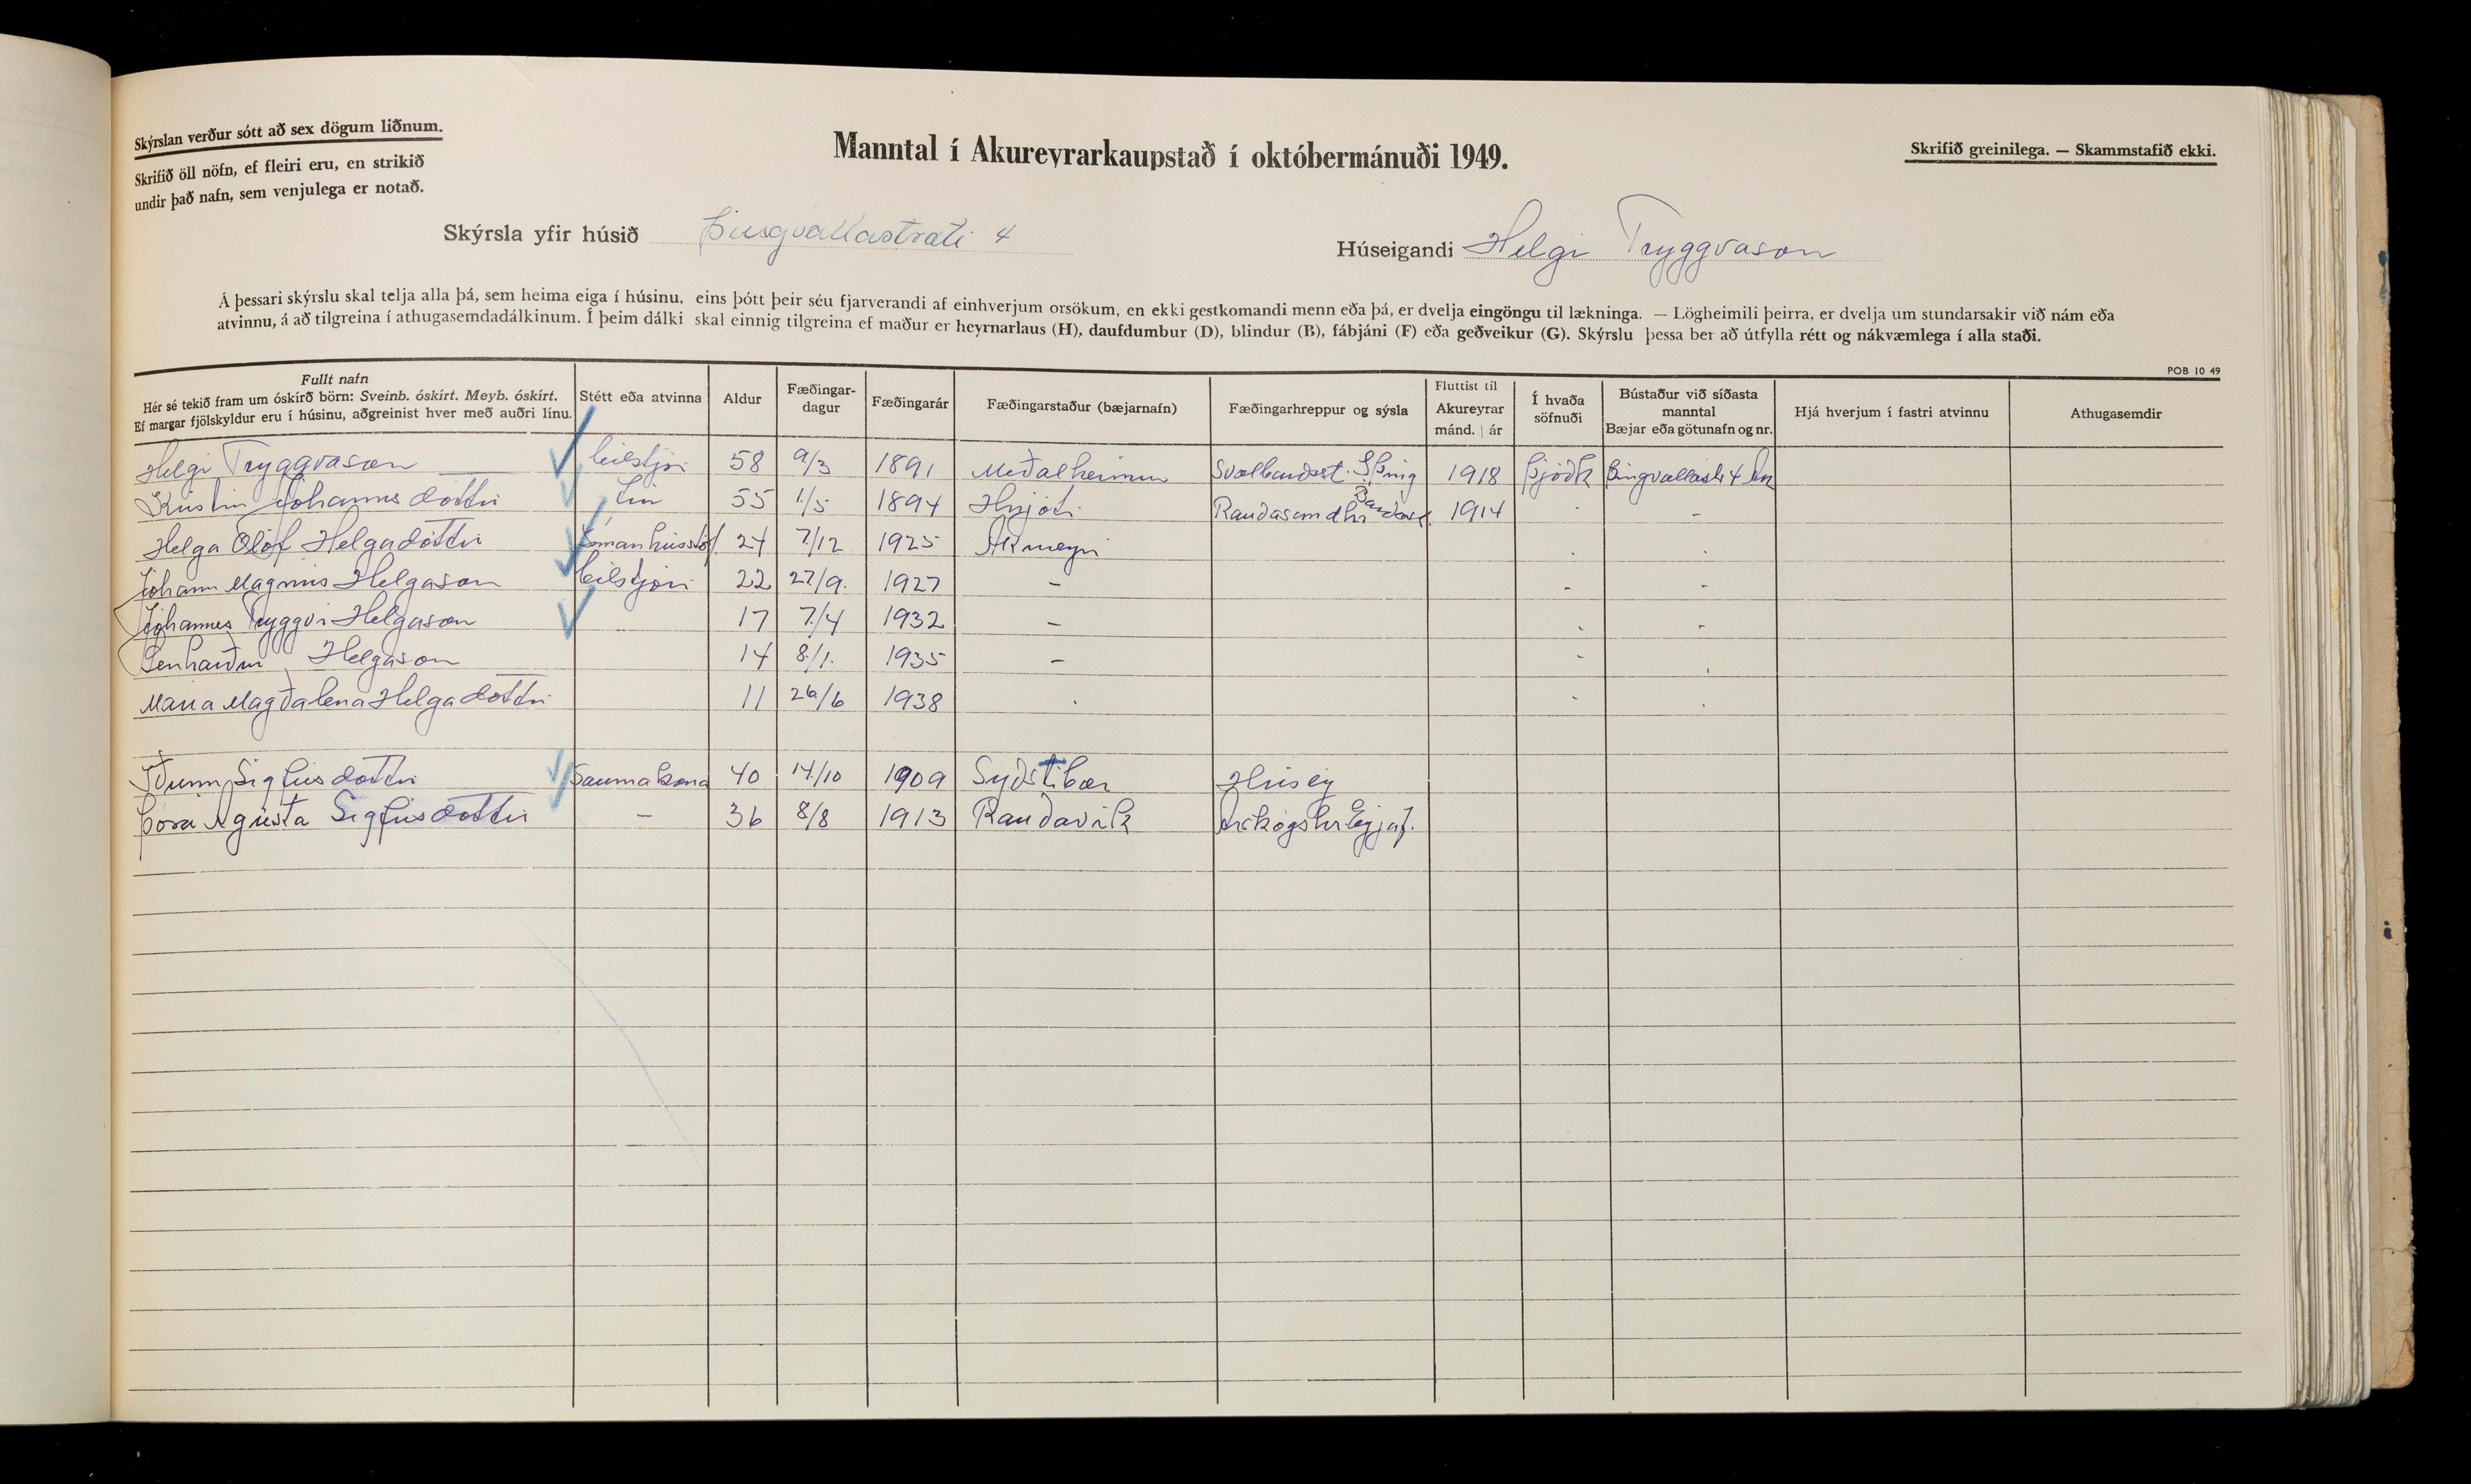 Skýrslan verður sótt að sex dögum liðnum.
Skrifið öll nöfn, ef fleiri eru, en strikið
undir það nafn, sem venjulega er notað.
Manntal í Akureyrarkaupstað í októbermánuði 1949.
Skrifið greinilega. — Skammstafið ekki.
Skýrsla yfir húsið Þingvallastræti 4
Húseigandi Helgi Tryggvason
Á þessari skýrslu skal telja alla þá, sem heima eiga í húsinu, eins þótt þeir séu fjarverandi af einhverjum orsökum, en ekki gestkomandi menn eða þá, er dvelja eingöngu til lækninga. — Lögheimili þeirra, er dvelja um stundarsakir við nám eða
atvinnu, á að tilgreina í athugasemdadálkinum. Í þeim dálki skal einnig tilgreina ef maður er heyrnarlaus (H), daufdumbur (D), blindur (B), fábjáni (F) eða geðveikur (G). Skýrslu þessa ber að útfylla rétt og nákvæmlega í alla staði.
POB 10 49
Fullt nafn
Hér sé tekið fram um óskírð börn: Sveinb. óskírt. Meyb. óskírt.
Ef margar fjölskyldur eru í húsinu, aðgreinist hver með auðri línu.
Stétt eða atvinna
Aldur
Fæðingar-
dagur
Fæðingarár
Fæðingarstaður (bæjarnafn)
Fæðingarhreppur og sýsla
Fluttist til
Akureyrar
mánd. | ár
Í hvaða
söfnuði
Bústaður við síðasta
manntal
Bæjar eða götunafn og nr.
Hjá hverjum í fastri atvinnu
Athugasemdir
Helgi Tryggvason bílstjóri 58 9/3 1891 Meðalheimur Svalbarðsst. S Þing 1918 Þjóðk Þingvallastr 4
Kristín Jóhannesdóttir 55 1/5 1894 Hnjóti Rauðasandhr Barðast. 1914 -
Helga Ólöf Helgadóttir Símanhússtöf 24 7/12 1925 Akureyri
Jóhann Magnús Helgason bílstjóri 22 27/9. 1927 – - -
Jóhannes Tryggvi Helgason 17 7/4 1932 – - -
Lenharður Helgason 14 8/1. 1935 – -
María Magðalena Helgadóttir 11 26/6 1938 -
Iðunn Sigfúsdóttir Saumakona 40 14/10 1909 Syðstibær Hrísey
Þóra Ágústa Sigfúsdóttir – 36 8/8 1913 Rauðavík Árskógshr. Eyjaf.